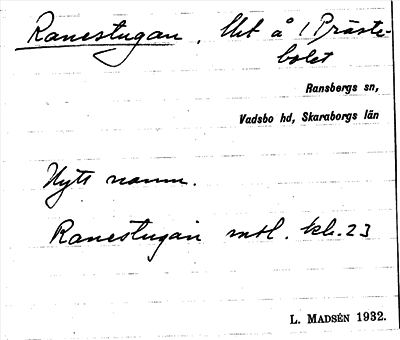 Ranestugan. Uht å 1 Präste-
bolet
Ransbergs sn,
Vadsbo hd, Skaraborgs län
Nytt namn.
Ranestugan mtl. kh. 23
L. MADSÉN 1932.